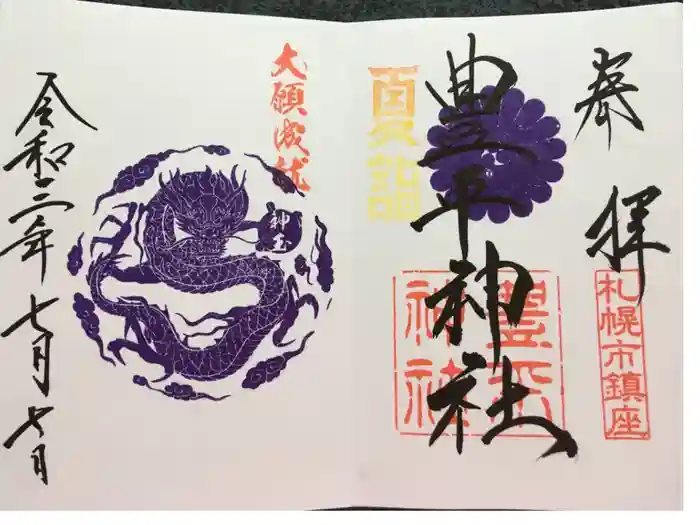 奉拝
札幌市鎮座
豊平神社
豊平
神社
夏詣
大願成就
神玉
令和二年七月七日